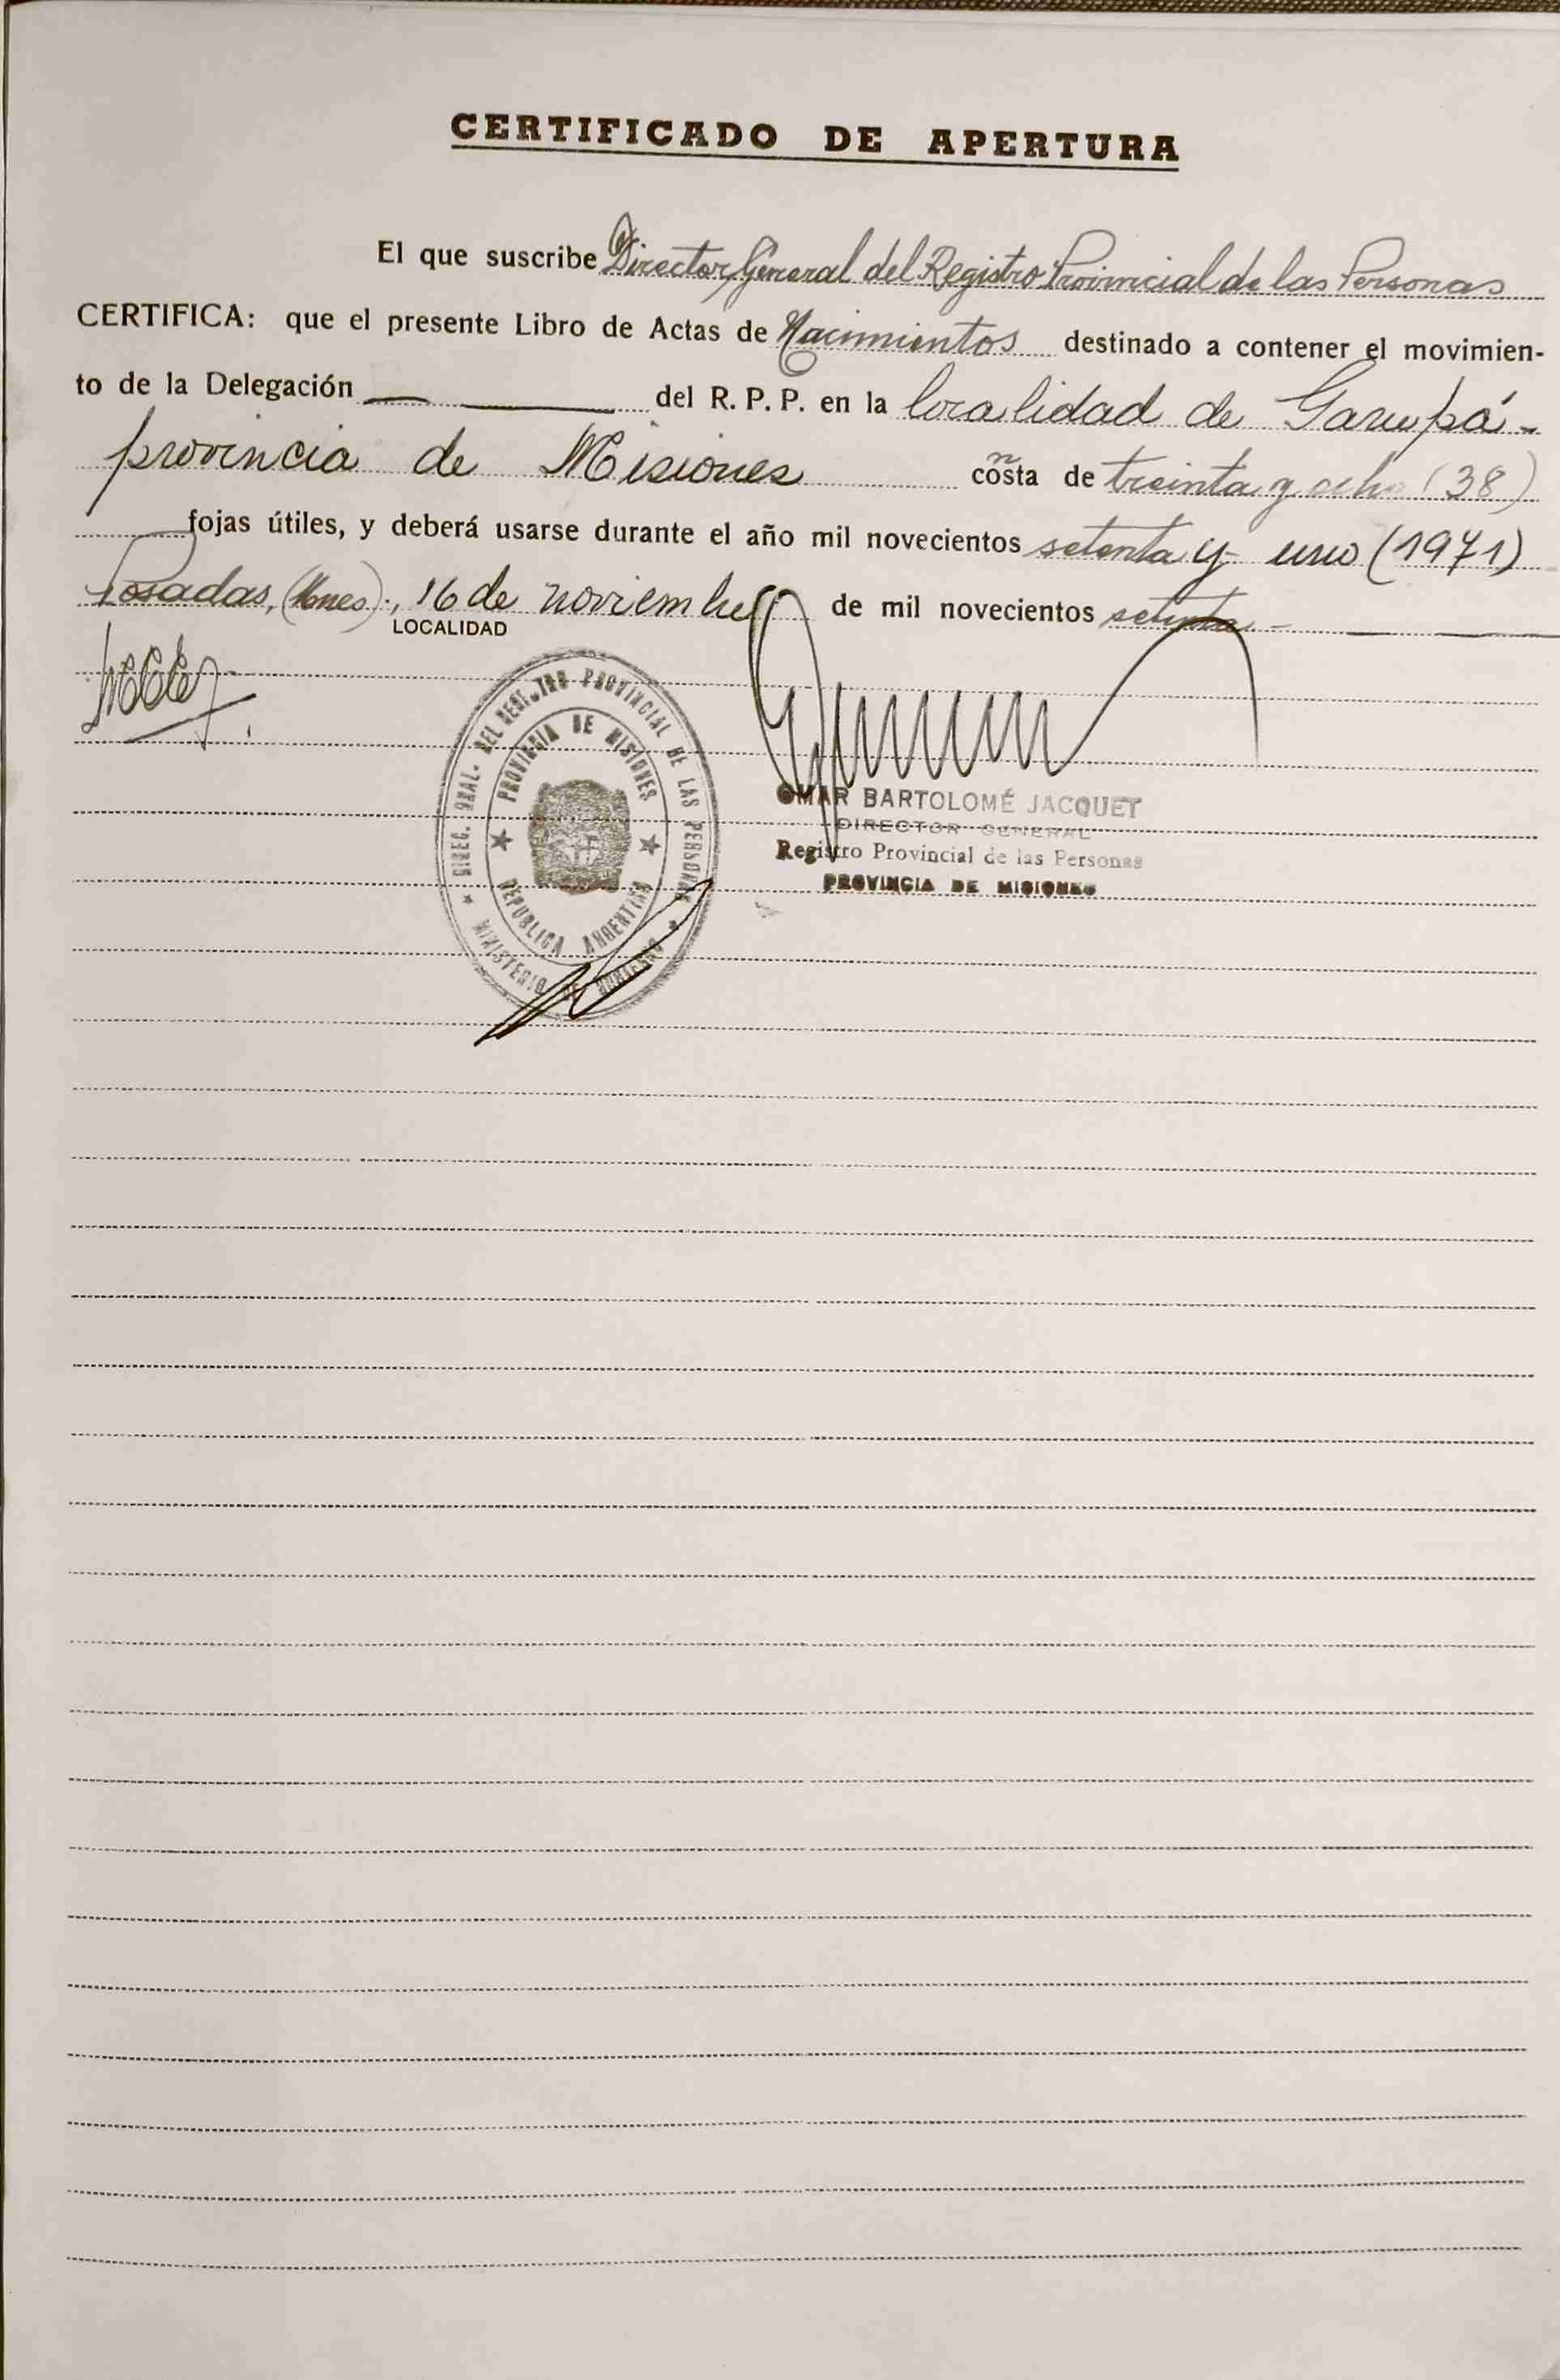 CERTIFICADO DE APERTURA
El que suscribe Director General del Registro Provincial de las Personas
CERTIFICA: que el presente Libro de Actas de Nacimientos destinado a contener el movimien-
to de la Delegación del R. P. P. en la localidad de Garupá -
provincia de Misiones consta de treinta y ocho (38)
fojas útiles, y deberá usarse durante el año mil novecientos setenta y uno (1971)
Posadas, (Mnes)., 16 de noviembre de mil novecientos setenta -
LOCALIDAD
DIREC. GRAL. DEL REGISTRO PROVINCIAL DE LAS PERSONAS
PROVINCIA DE MISIONES
REPUBLICA ARGENTINA
MINISTERIO DE GOBIERNO
OMAR BARTOLOMÉ JACQUET
DIRECTOR GENERAL
Registro Provincial de las Personas
PROVINCIA DE MISIONES